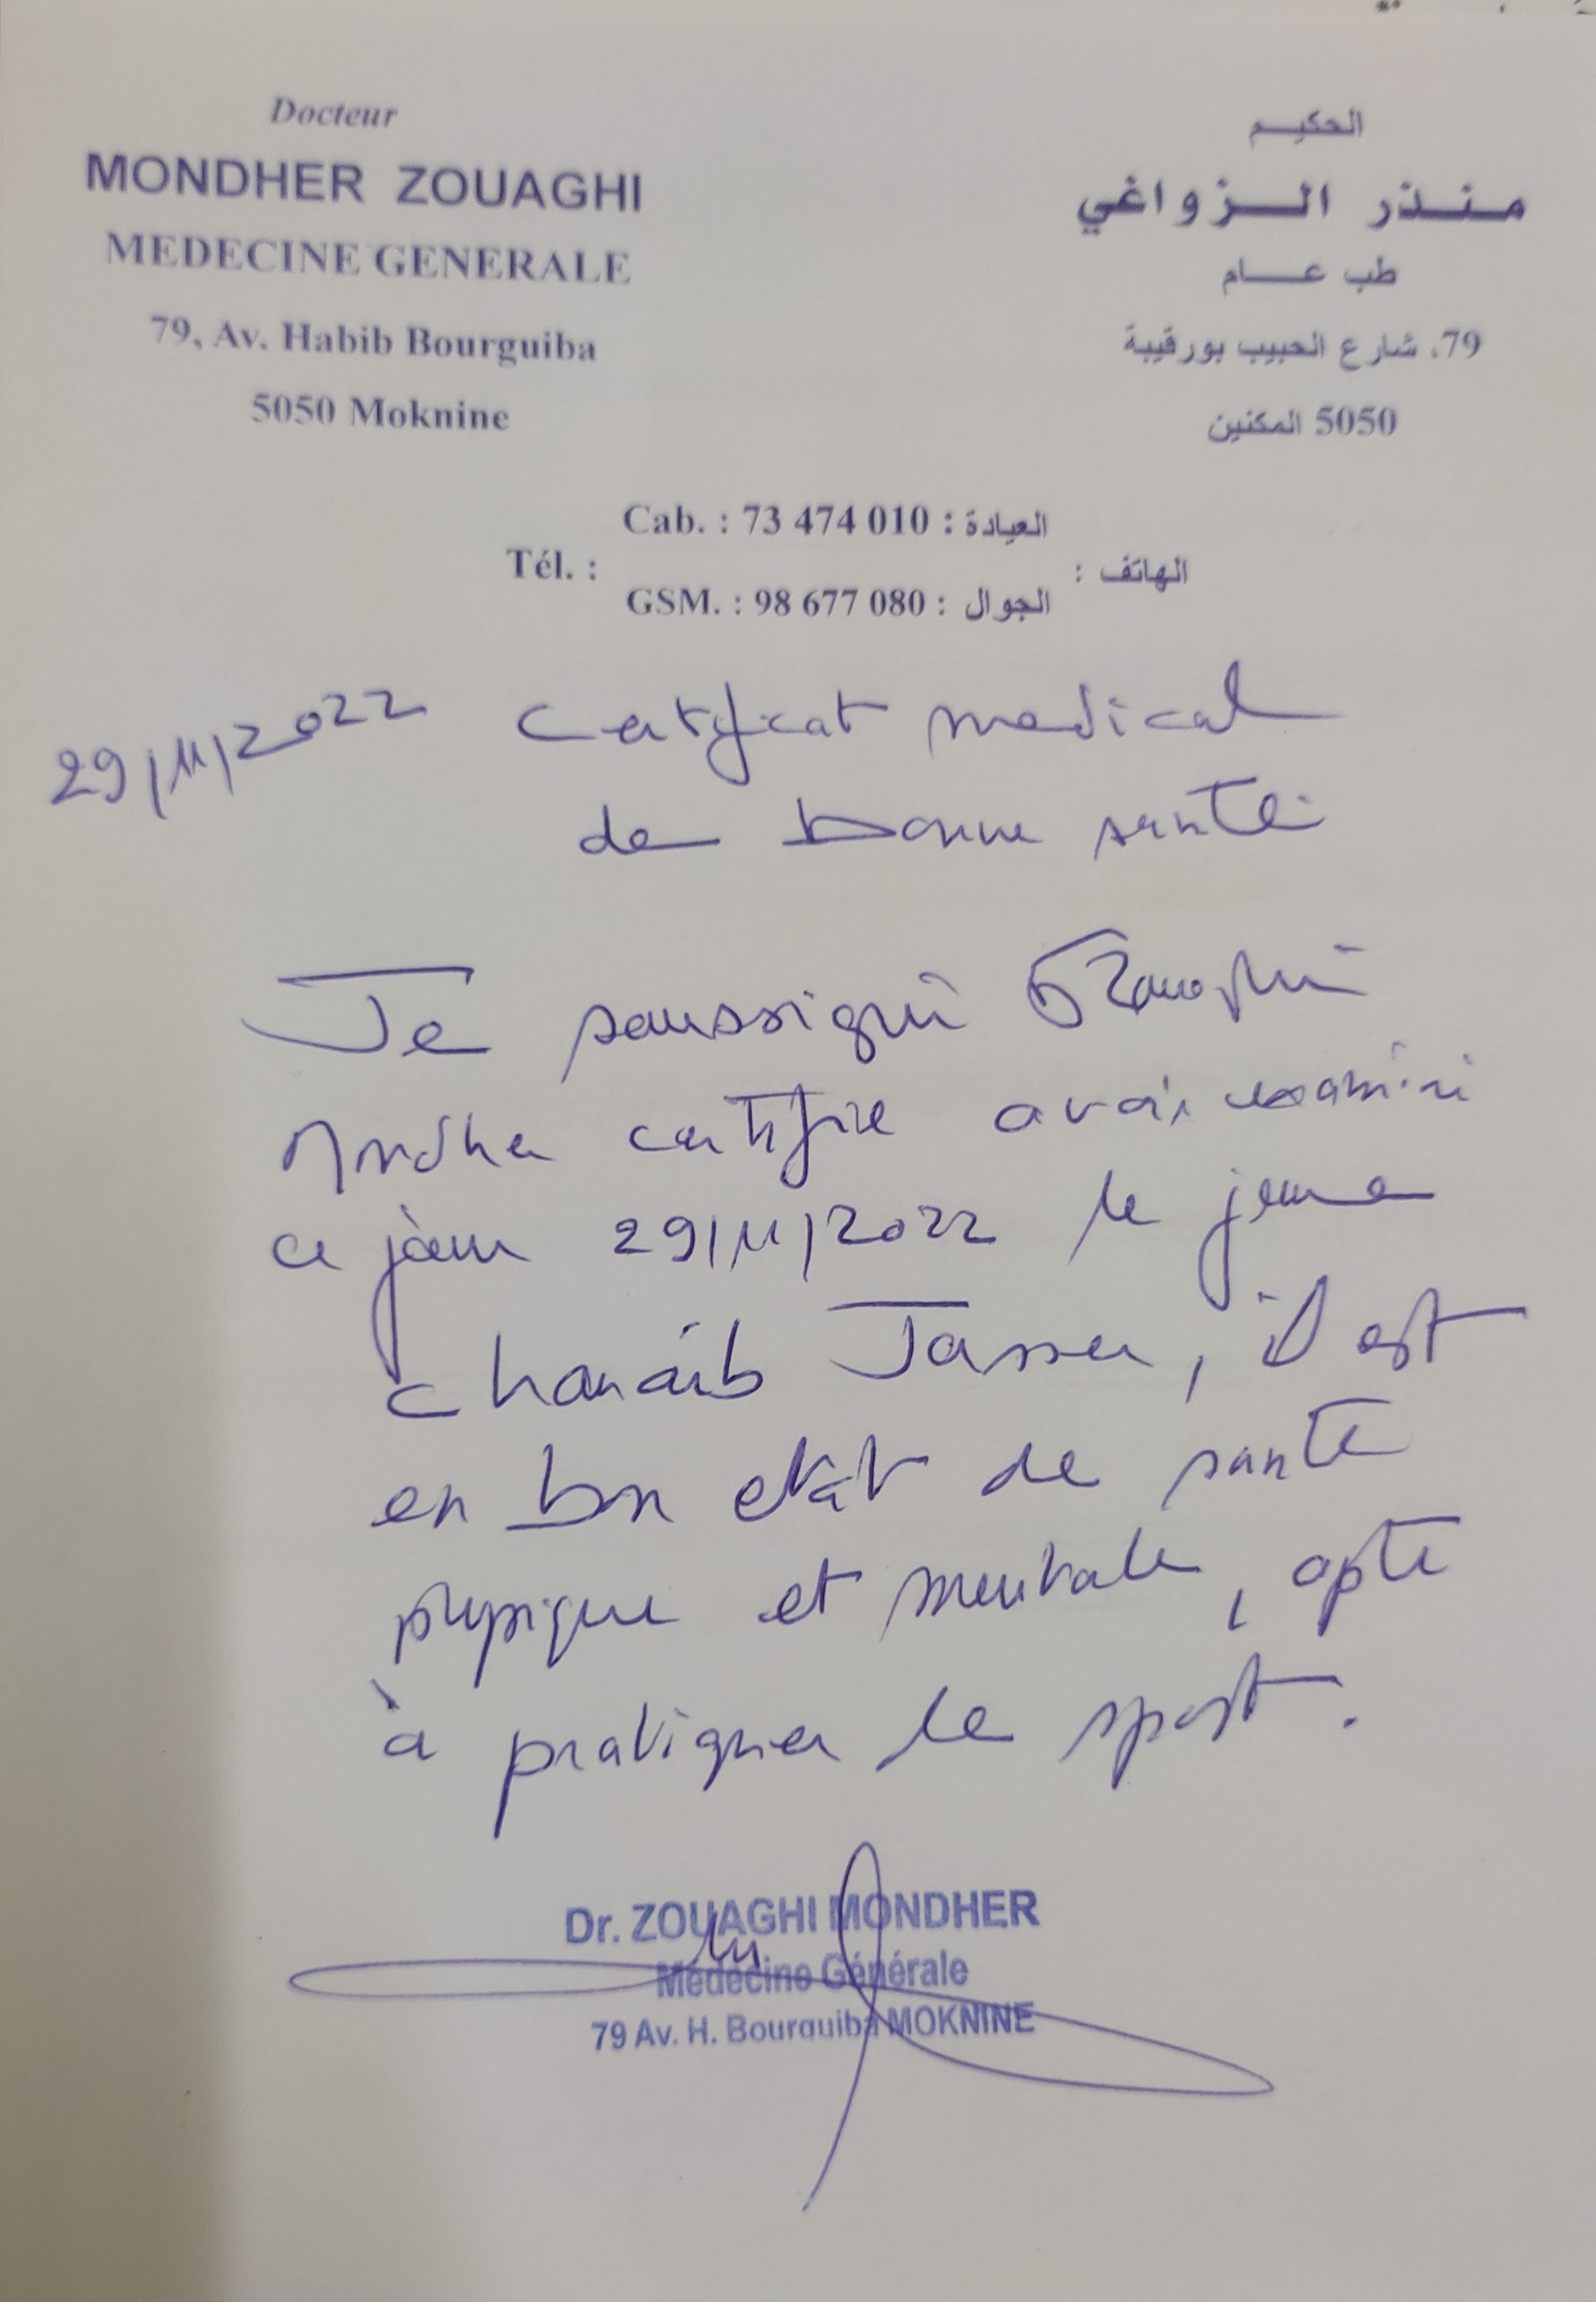 Docteur
MONDHER ZOUAGHI
MEDECINE GENERALE
79, Av. Habib Bourguiba
5050 Moknine
الحكيم
منذر الزواغي
طب عام
79، شارع الحبيب بورقيبة
5050 المكنين
Cab. : 73 474 010 : العيادة
Tél. : الهاتف :
GSM. : 98 677 080 : الجوال
29/11/2022
Certificat medical
de bonne santé
Je soussigné Dr Zouaghi
Mondher certifie avoir examiné
ce jour 29/11/2022 le jeune
Chouaib Jasser, il est
en bon etat de santé
physique et mentale, apte
à pratiquer le sport.
Dr. ZOUAGHI MONDHER
Médecine Générale
79 Av. H. Bourguiba MOKNINE